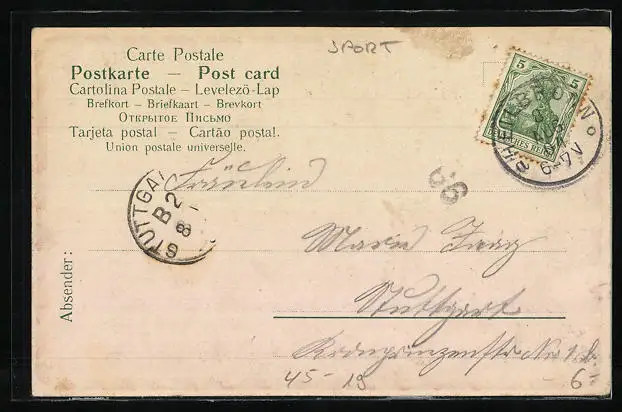 SPORT
Carte Postale
Postkarte — Post card
Cartolina Postale – Levelező-Lap
Brefkort – Briefkaart – Brevkort
Открытое Письмо
Tarjeta postal – Cartão postal.
Union postale universelle.
5 5
DEUTSCHES REICH
6-7V
STUTTGA
B2
8
Fräulein
Marie
Stuttgart
Kronprinzenstr.
Absender:
45-
19
6-